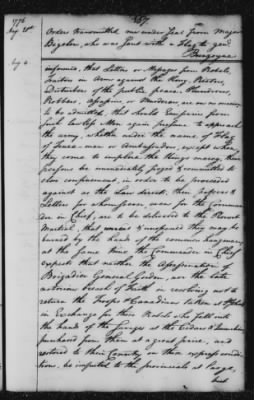 167.
1776
Aug. 2d
Order transmitted me under Seal from Major
Bigelow, who was sent with a Flag to Genl.
Burgoyne
informed, that Letters or Messages from Rebels,
Traitors in Arms against the King, Rioters,
Disturbers of the public peace, Plunderers,
Robbers, Assassins, or Murderers, are on no occasion
to be admitted, that should Emissaries from
such lawless Men again presume to approach
the army, whether under the name of Flag
of Truce-men or Ambassadors, except when
they come to implore the King's mercy, their
persons be immediately seized & committed to
close confinement, in order to be proceeded
against as the Law directs, their papers &
Letters for whomsoever, even for the Comman-
der in Chief, are to be delivered to the Provost
Martial, that unread & unopened they may be
burned by the hands of the common hangman;
at the same time the Commander in Chief
expects that neither the Assassination of
Brigadier General Gordon, nor the late
notorious breach of Faith in resolving not to
return the Troops & Canadians taken at St. Johns
in Exchange for those Rebels who fell into
the hands of the Savages at the Cedars &
purchased from them at a great price, and
restored to their Country on these express condi-
tions, be imputed to the provincials at large,
but